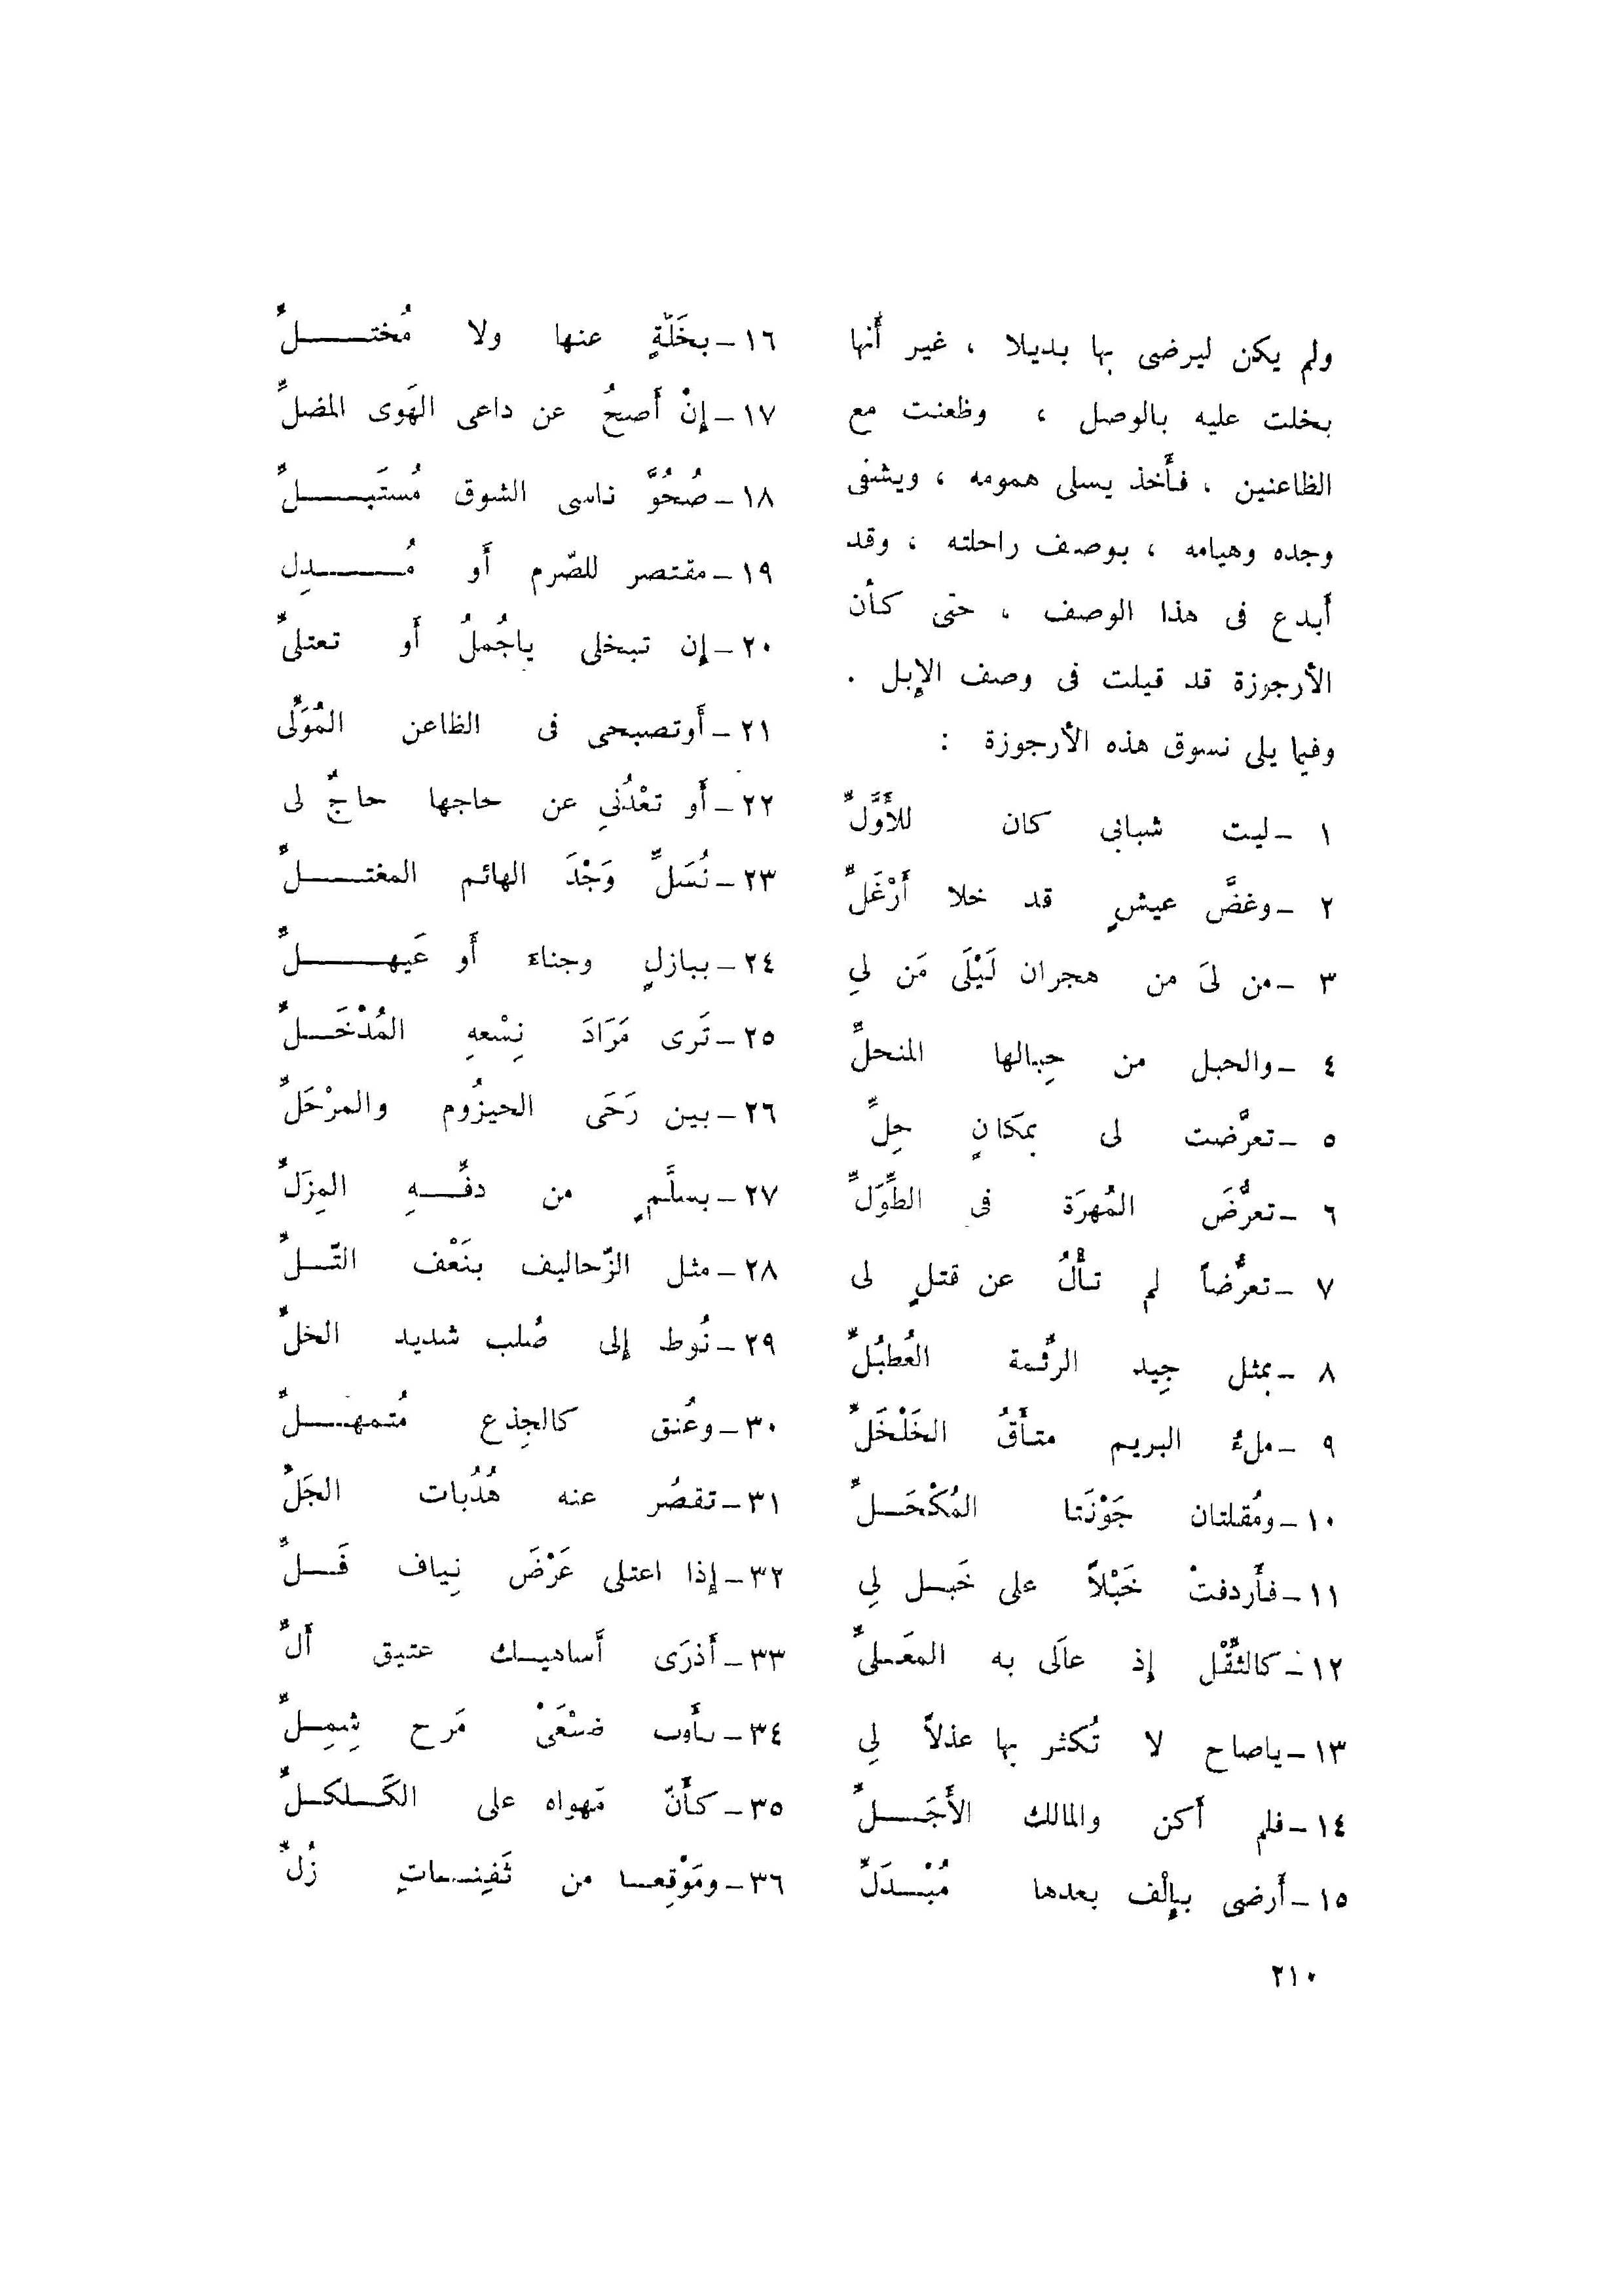 ولم يكن ليرضى بها بديلا ، غير أنها
بخلت عليه بالوصل ، وظعنت مع
الظاعنين ، فأخذ يسلى همومه ، ويشفى
وجده وهيامه ، بوصف راحلته ، وقد
أبدع فى هذا الوصف ، حتى كأن
الأرجوزة قد قيلت فى وصف الإبل .
وفيما يلى نسوق هذه الأرجوزة :
١ - ليت شبابى كان للأَوَّلِّ
٢ - وغضَّ عيشٍ قد خلا أَرْغَلِّ
٣ - من لىَ من هجران لَيْلَى مَن لىِ
٤ - والحبل من حِبالها المنحلِّ
٥ - تعرَّضت لى بمكانٍ حِلِّ
٦ - تعرُّضَ المُهرَة فى الطِّوَلِّ
٧ - تعرُّضاً لم تأْلُ عن قتلٍ لى
٨ - بمثل جِيد الرئمة العُطبُلِّ
٩ - ملءُ البريم متأَقُ الخَلْخَلِّ
١٠ - ومُقلتان جَوْنَتا المُكْحَلِّ
١١ - فأَردفتْ خَبْلاً على خَبل لىِ
١٢ - كالثقْل إذ عالَى به المعَلىِّ
١٣ - ياصاح لا تُكثر بها عذلاً لىِ
١٤ - فلم أَكن والمالك الأَجَلِّ
١٥ - أَرضى بإِلْف بعدها مُبْدَلِّ
١٦ - بخَلّةٍ عنها ولا مُختلِّ
١٧ - إِنْ أَصحُ عن داعى الهَوى المضلِّ
١٨ - صُحُوَّ ناسى الشوق مُستَبِلِّ
١٩ - مقتصر للصّرم أَو مُدِل
٢٠ - إِن تبخلى ياجُملُ أَو تعتلىِّ
٢١ - أَوتصبحى فى الظاعن المُوَلِّى
٢٢ - أَو تعْدُنىِ عن حاجها حاجٌ لى
٢٣ - نُسَلِّ وَجْدَ الهائم المغتلِّ
٢٤ - ببازلٍ وجناءَ أَو عَيهلِّ
٢٥ - تَرى مَرَادَ نِسْعهِ المُدْخَلِّ
٢٦ - بين رَحَى الحيزُوم والمرْحَلِّ
٢٧ - بسلَّمٍ من دفِّهِ المِزَلِّ
٢٨ - مثل الزّحاليف بنَعْف التّلِّ
٢٩ - نُوط إلى صُلب شديد الخلِّ
٣٠ - وعُنق كالجِذع مُتمهلِّ
٣١ - تقصُر عنه هُدُبات الجَلِّ
٣٢ - إذا اعتلى عَرْضَ نِياف فَلِّ
٣٣ - أَذرَى أَساهيك عتيق أَلِّ
٣٤ - بأَوب ضبْعَىْ مَرح شِمِلِّ
٣٥ - كأَنّ مَهواه على الكَلكلِّ
٣٦ - ومَوْقِعا من ثَفِناتٍ زُلِّ
٢١٠